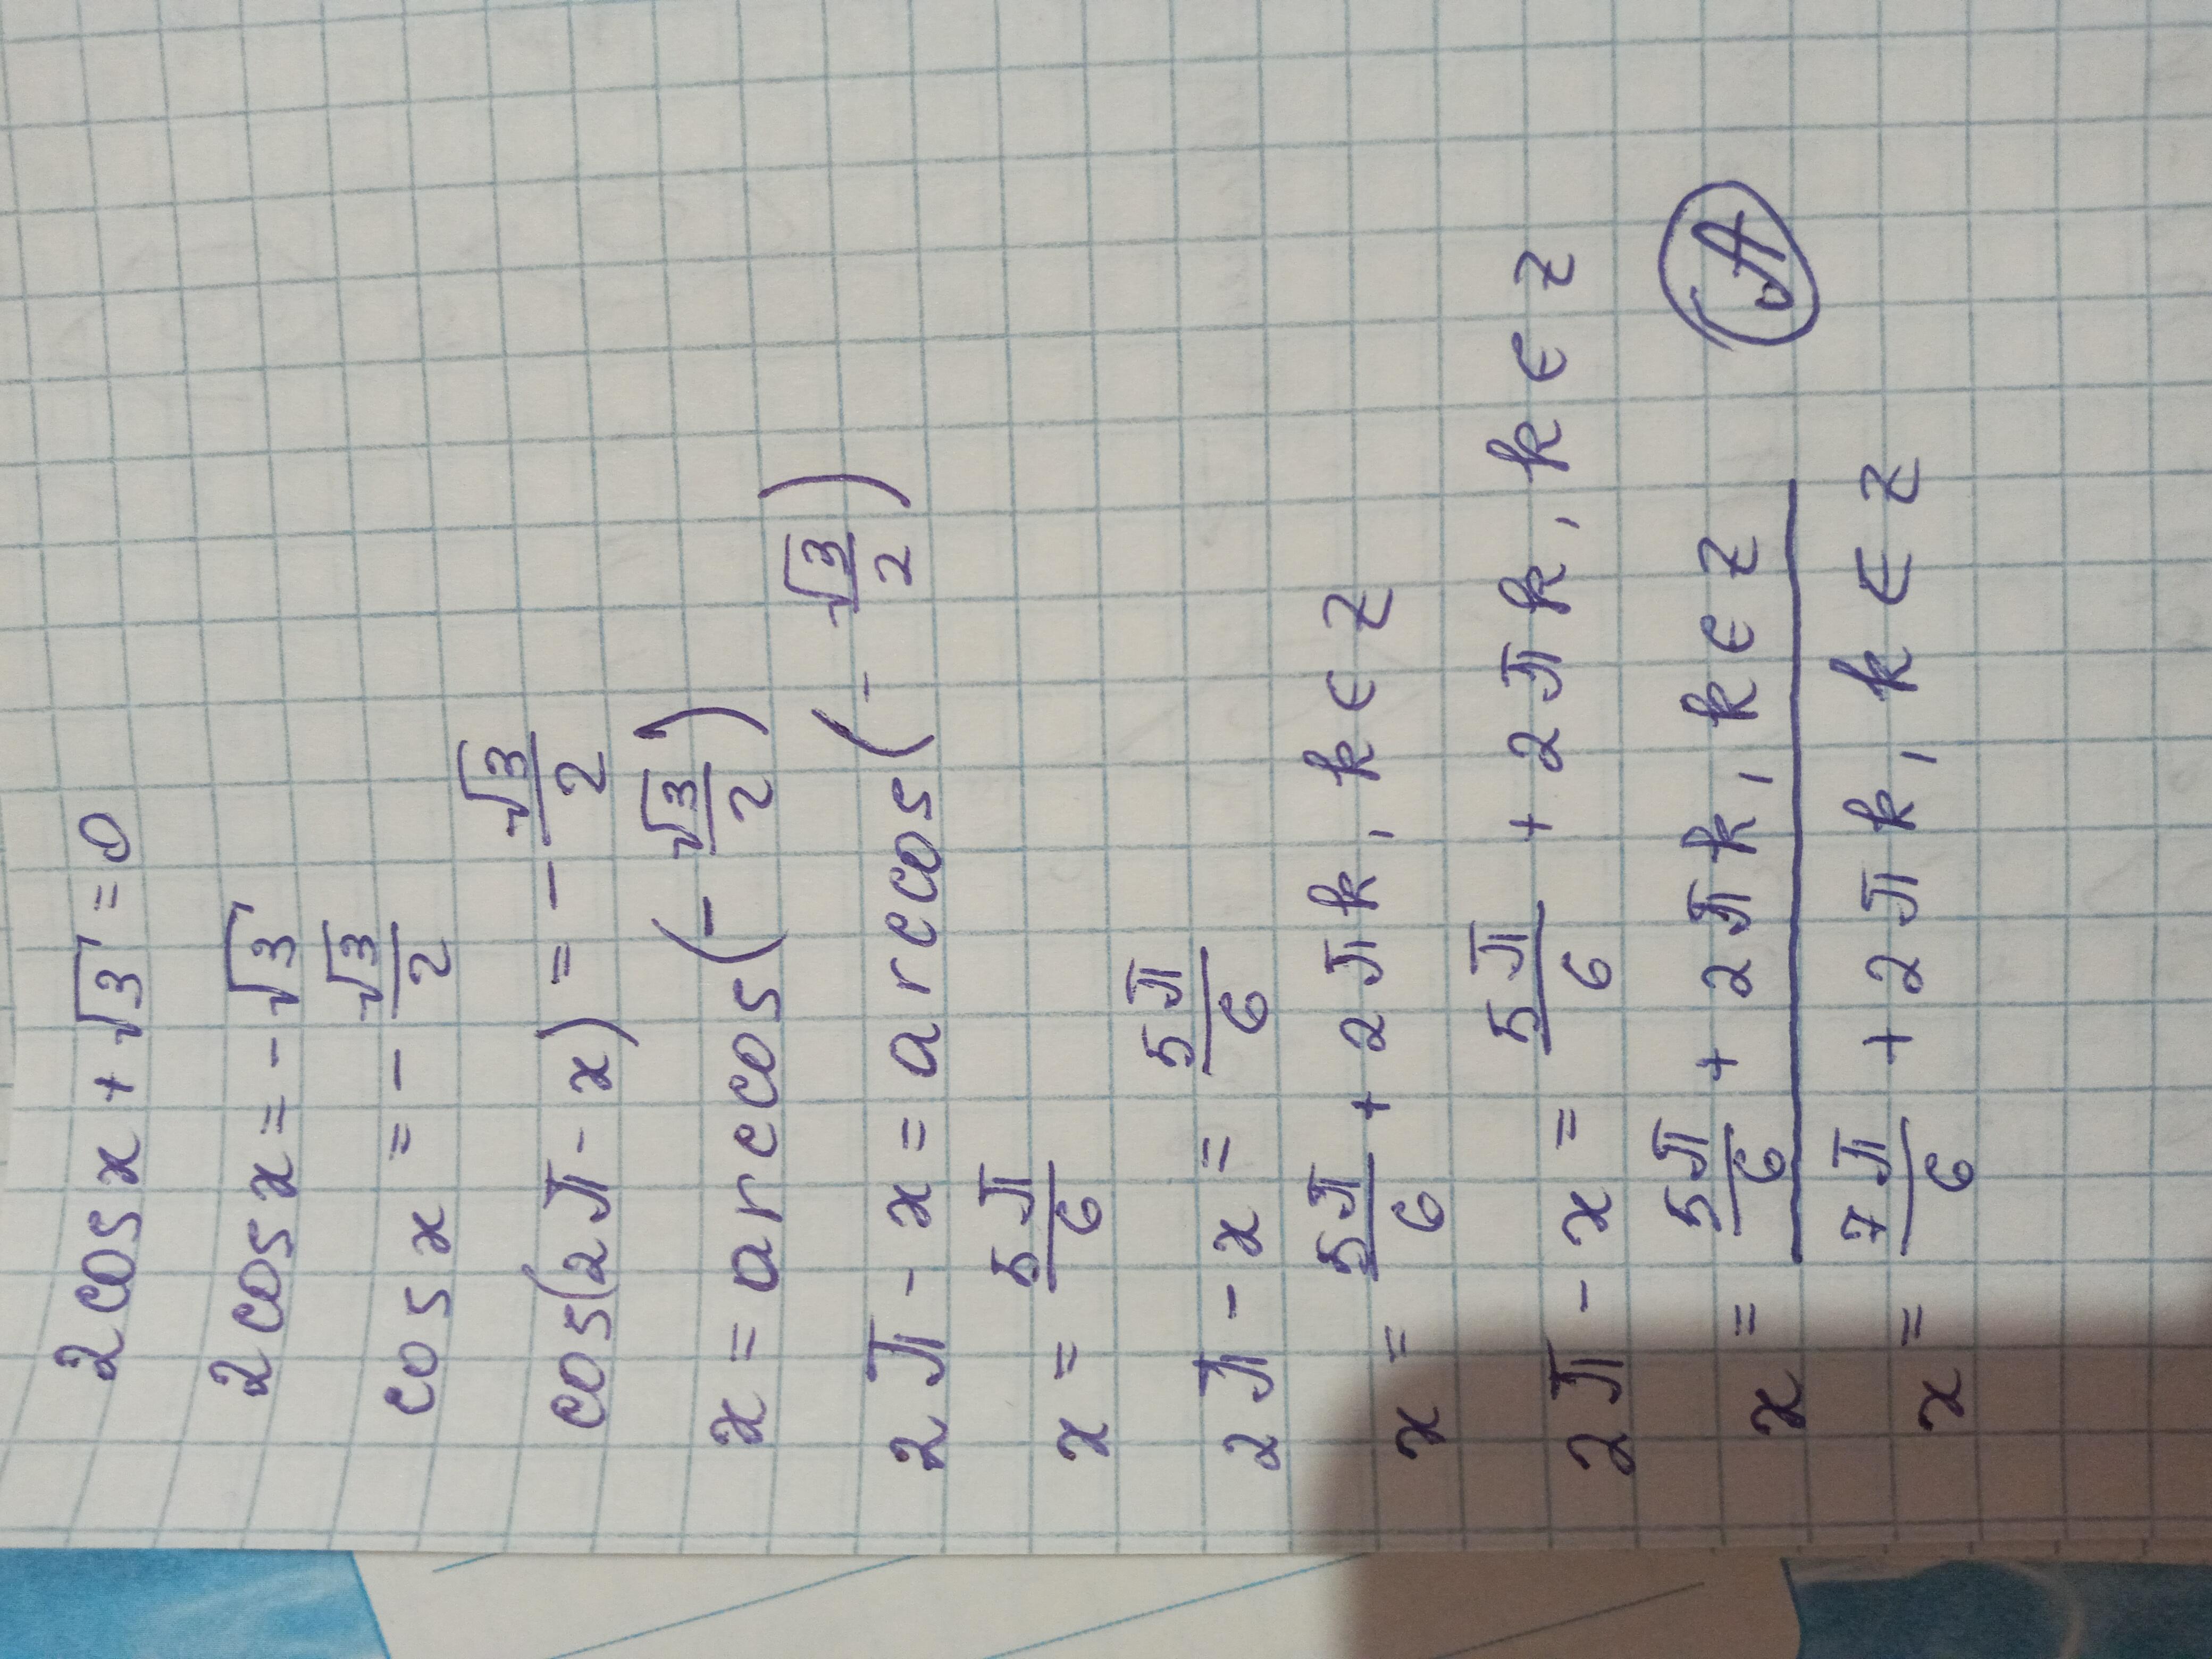 2cosx + √3 = 0
2cosx = -√3
cosx = -√3/2
cos(2π - x) = -√3/2
x = arccos(-√3/2)
2π - x = arccos(-√3/2)
x = 5π/6
2π - x = 5π/6
x = 5π/6 + 2πk, k ∈ Z
2π - x = 5π/6 + 2πk, k ∈ Z
x = 5π/6 + 2πk, k ∈ Z
A
x = 7π/6 + 2πk, k ∈ Z